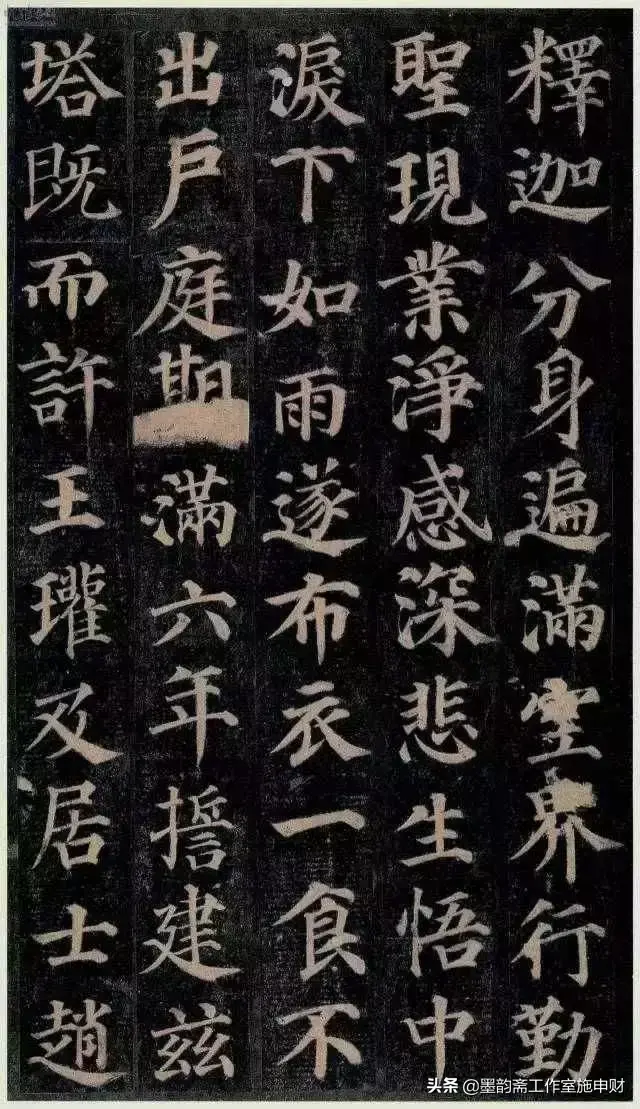 釋迦分身遍滿空界行勤
聖現業淨感深悲生悟中
淚下如雨遂布衣一食不
出戶庭期滿六年誓建茲
塔既而許王瓘及居士趙
头条 @墨韵斋工作室施申财